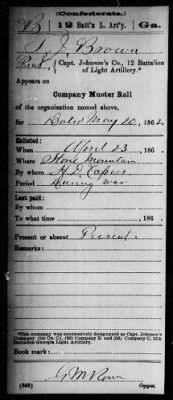 (Confederate.)
B 12 Batt'n L. Art'y. Ga.
T. J. Brown
Pvt., Capt. Johnson's Co., 12 Battalion
of Light Artillery.*
Appears on
Company Muster Roll
of the organization named above,
for Dated May 20, 1862.
Enlisted:
When April 23, 186 .
Where Stone Mountain
By whom H. D. Capers
Period During war
Last paid:
By whom
To what time , 186 .
Present or absent Present
Remarks:
*This company was successively designated as Capt. Johnson's
Company
Battalion Georgia Light Artillery.
Book mark:
G M Rowe
(642) Copyist.